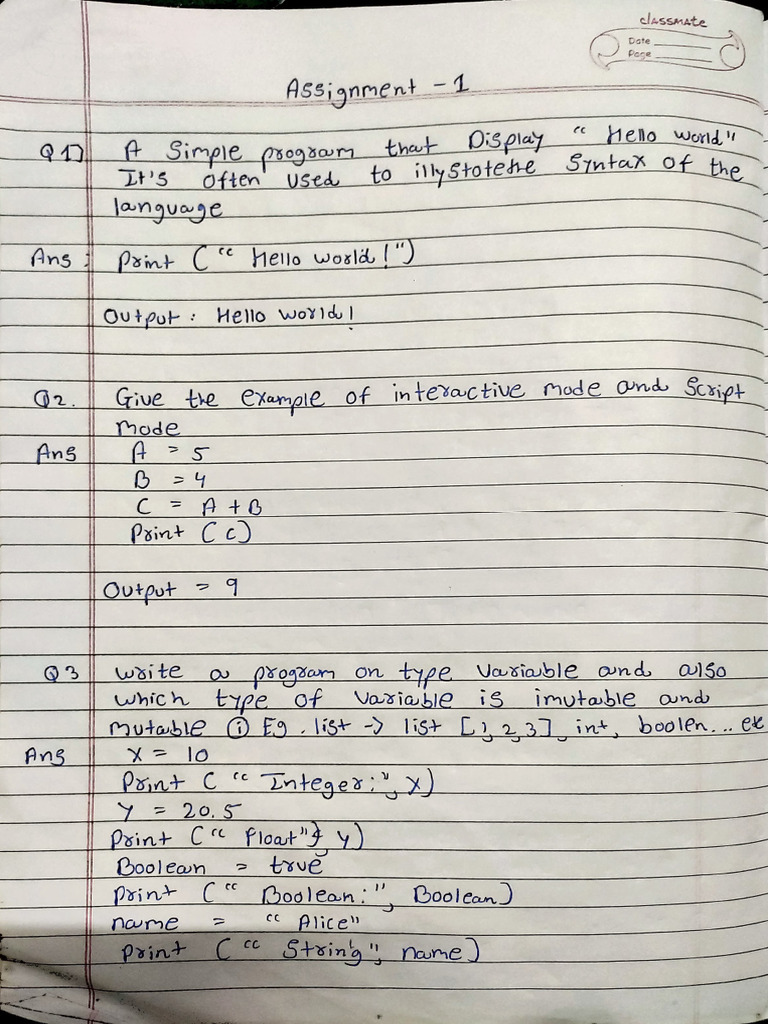 classmate
Date
Page
Assignment - 1
Q 1) A Simple program that Display "Hello world"
It's often used to illystotethe Syntax of the
language
Ans : Print ("Hello world!")
Output : Hello world!
Q2. Give the example of interactive mode and Script
mode
Ans A = 5
B = 4
C = A + B
Print (c)
Output = 9
Q3 write a program on type variable and also
which type of variable is imutable and
mutable ① Eg. list -> list [1,2,3], int, boolen... etc
Ans X = 10
Print ("Integer:", X)
Y = 20.5
Print ("Float", Y)
Boolean = true
Print ("Boolean:", Boolean)
name = "Alice"
Print ("String", name)